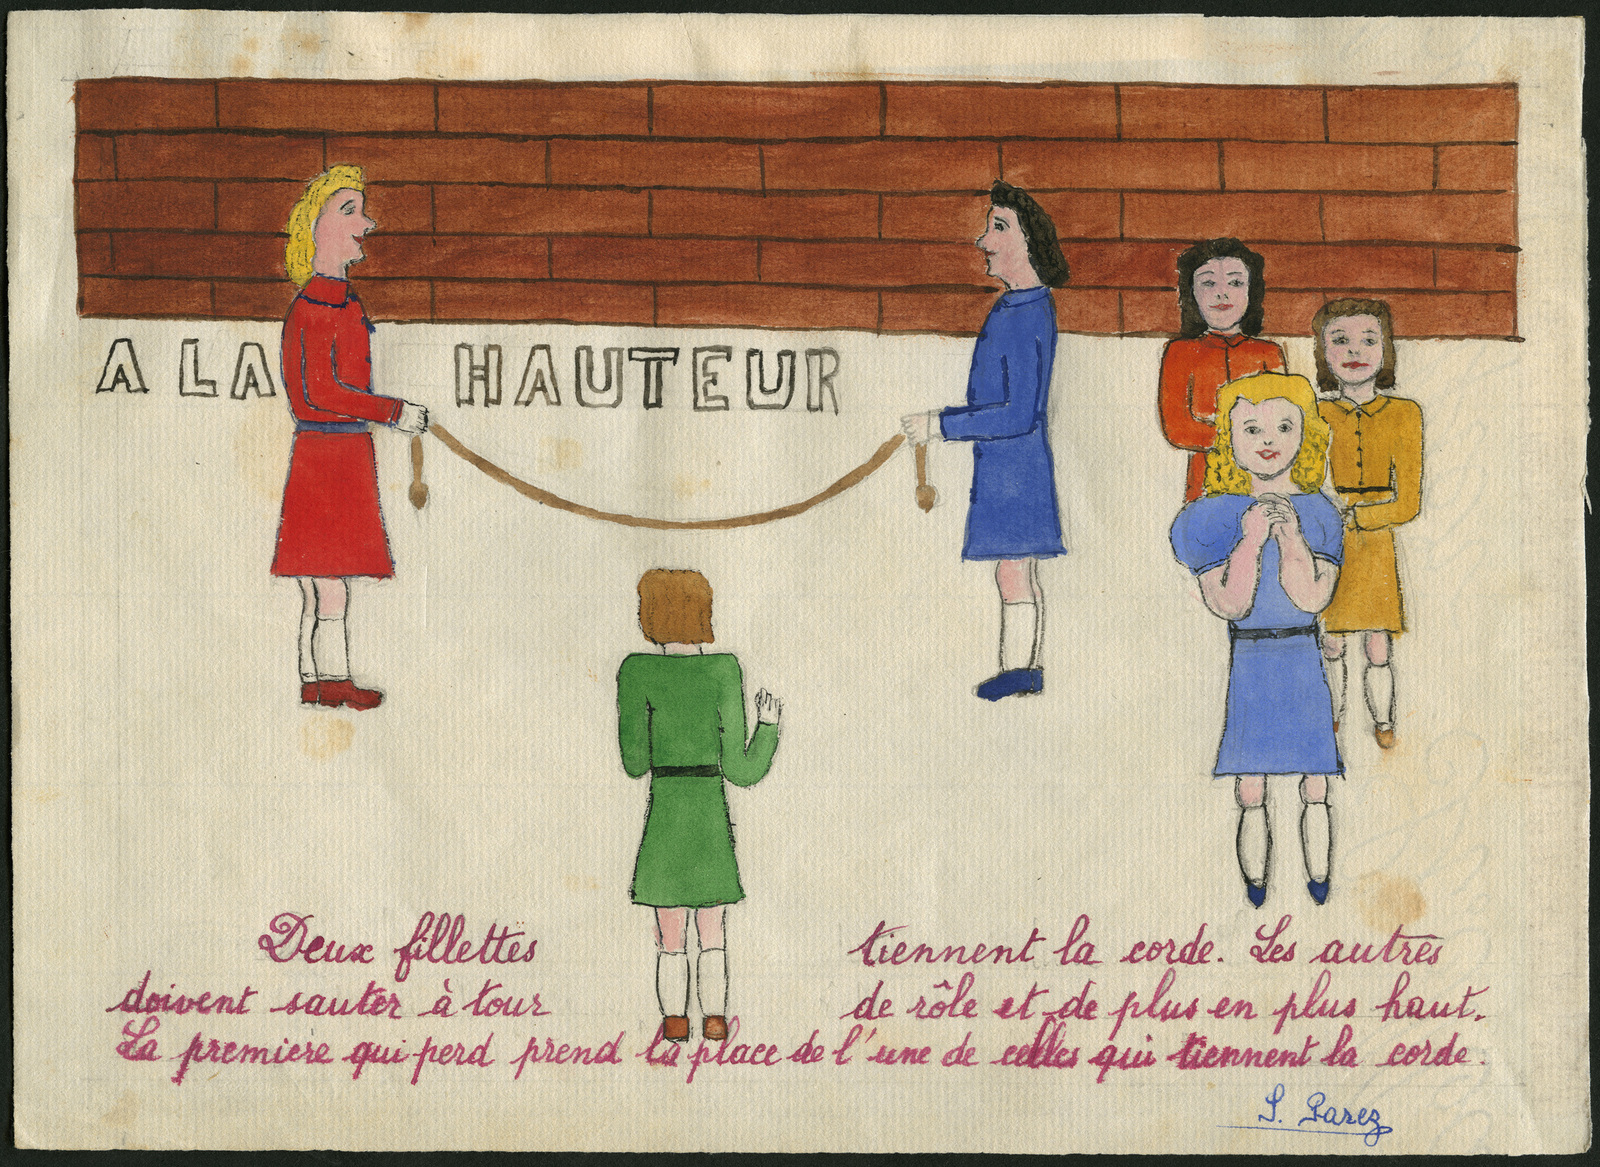 A LA HAUTEUR
Deux fillettes tiennent la corde. Les autres
doivent sauter à tour de rôle et de plus en plus haut.
La premiere qui perd prend la place de l'une de celles qui tiennent la corde.
S. Parez